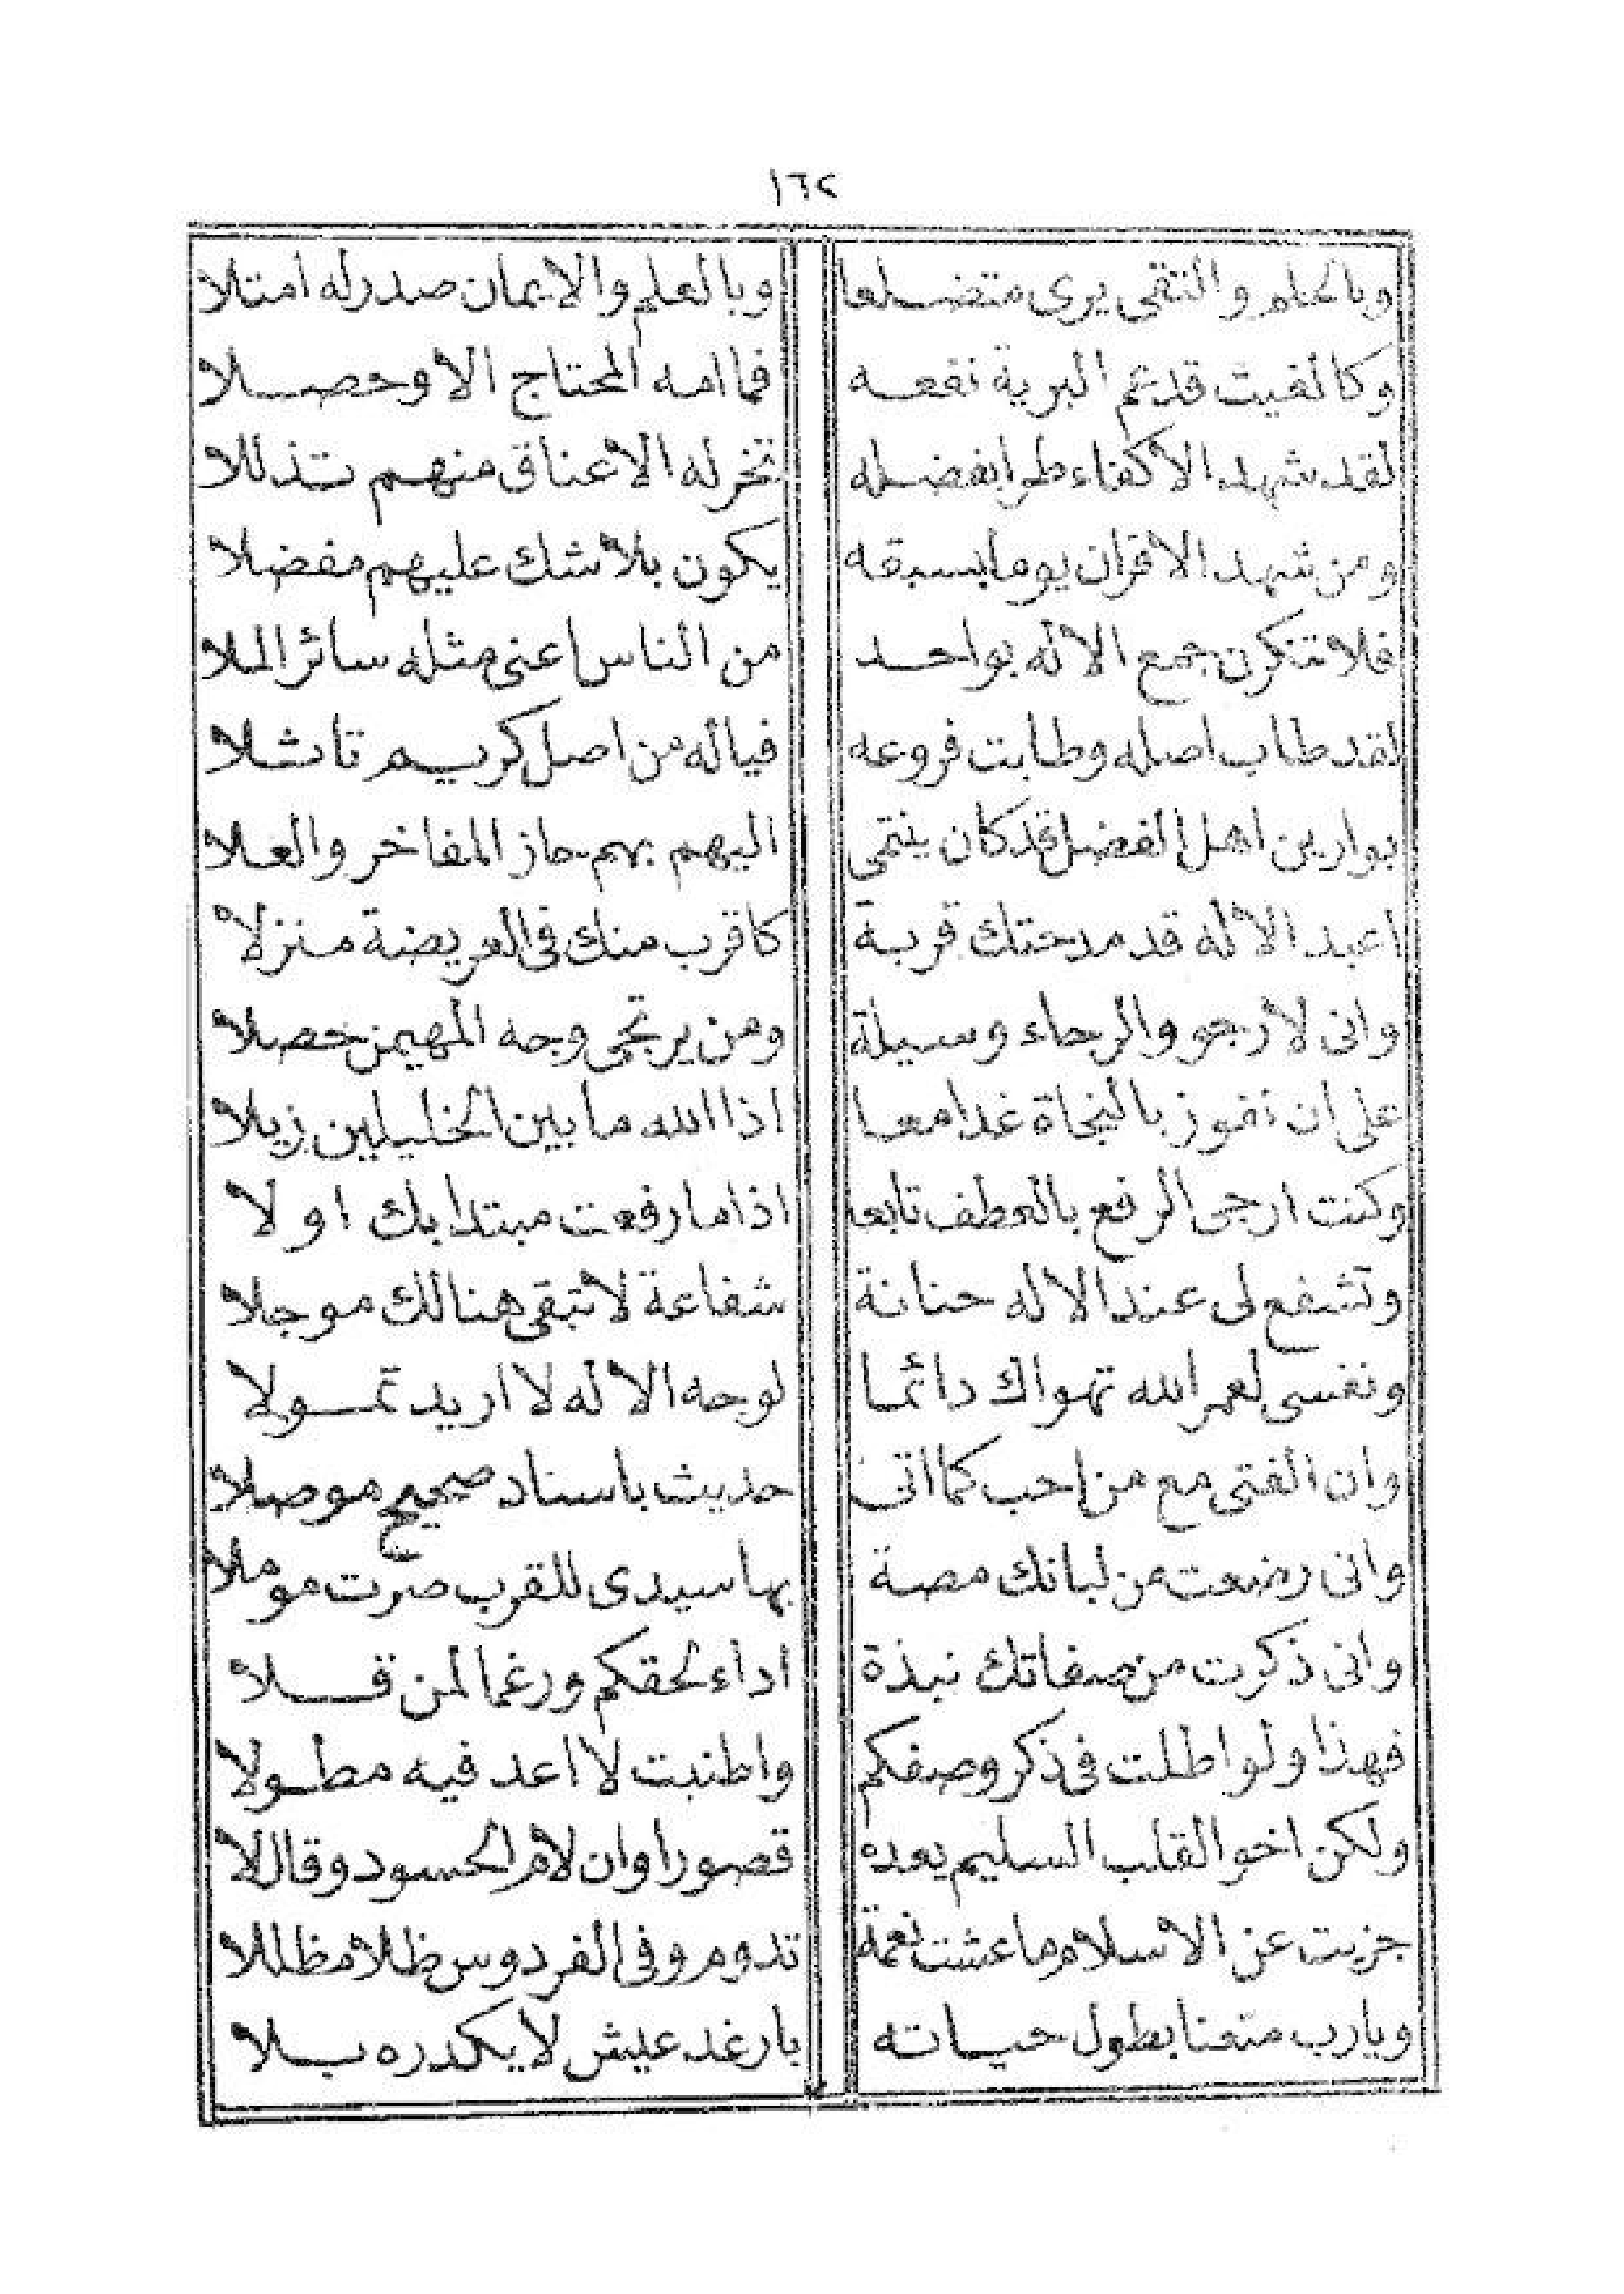 ١٦٢
وبالحلم والتقى يرى متضلعا وبالعلم والايمان صدر له امتلا
وكالغيث قد عم البرية نفعه فما امه المحتاج الا وحصلا
لقد شهد الاكفاء طرا بفضله تخر له الاعناق منهم تذللا
ومن شهد الاقران يوما بسبقه يكون بلا شك عليهم مفضلا
فلا تنكرن جمع الاله بواحد من الناس اعنى مثله سائر الملا
لقد طاب اصله وطابت فروعه فياله من اصل كريم تاثلا
بوارين اهل الفضل قد كان ينتمى اليهم بهم حاز المفاخر والعلا
اعبد الاله قد مدحتك قربة كاقرب منك فى العريضة منزلا
وانى لارجو والرجاء وسيلة ومن يرتجى وجه المهيمن حصلا
على ان نفوز بالنجاة غدا معا اذا الله ما بين الخليلين زيلا
وكنت ارجى الرفع بالعطف تابعا اذا ما رفعت مبتدا بك اولا
وتشفع لى عند الاله حنانة شفاعة لا تبقى هنالك موجلا
ونفسى لعمر الله تهواك دائما لوجه الاله لا اريد تمولا
وان الفتى مع من احب كما اتى حديث باسناد صحيح موصلا
وانى رضعت من لبانك مصة بها سيدى للقرب صرت موملا
وانى ذكرت من صفاتك نبذة اداء لحقكم ورغما لمن قلا
فهذا ولو اطلت فى ذكر وصفكم واطنبت لا اعد فيه مطولا
ولكن اخو القلب السليم يعده قصورا وان لام الحسود وقال لا
جزيت عن الاسلام ما عشت نعمة تدوم وفى الفردوس ظلا مظللا
ويارب متعنا بطول حياته بارغد عيش لا يكدره بلا